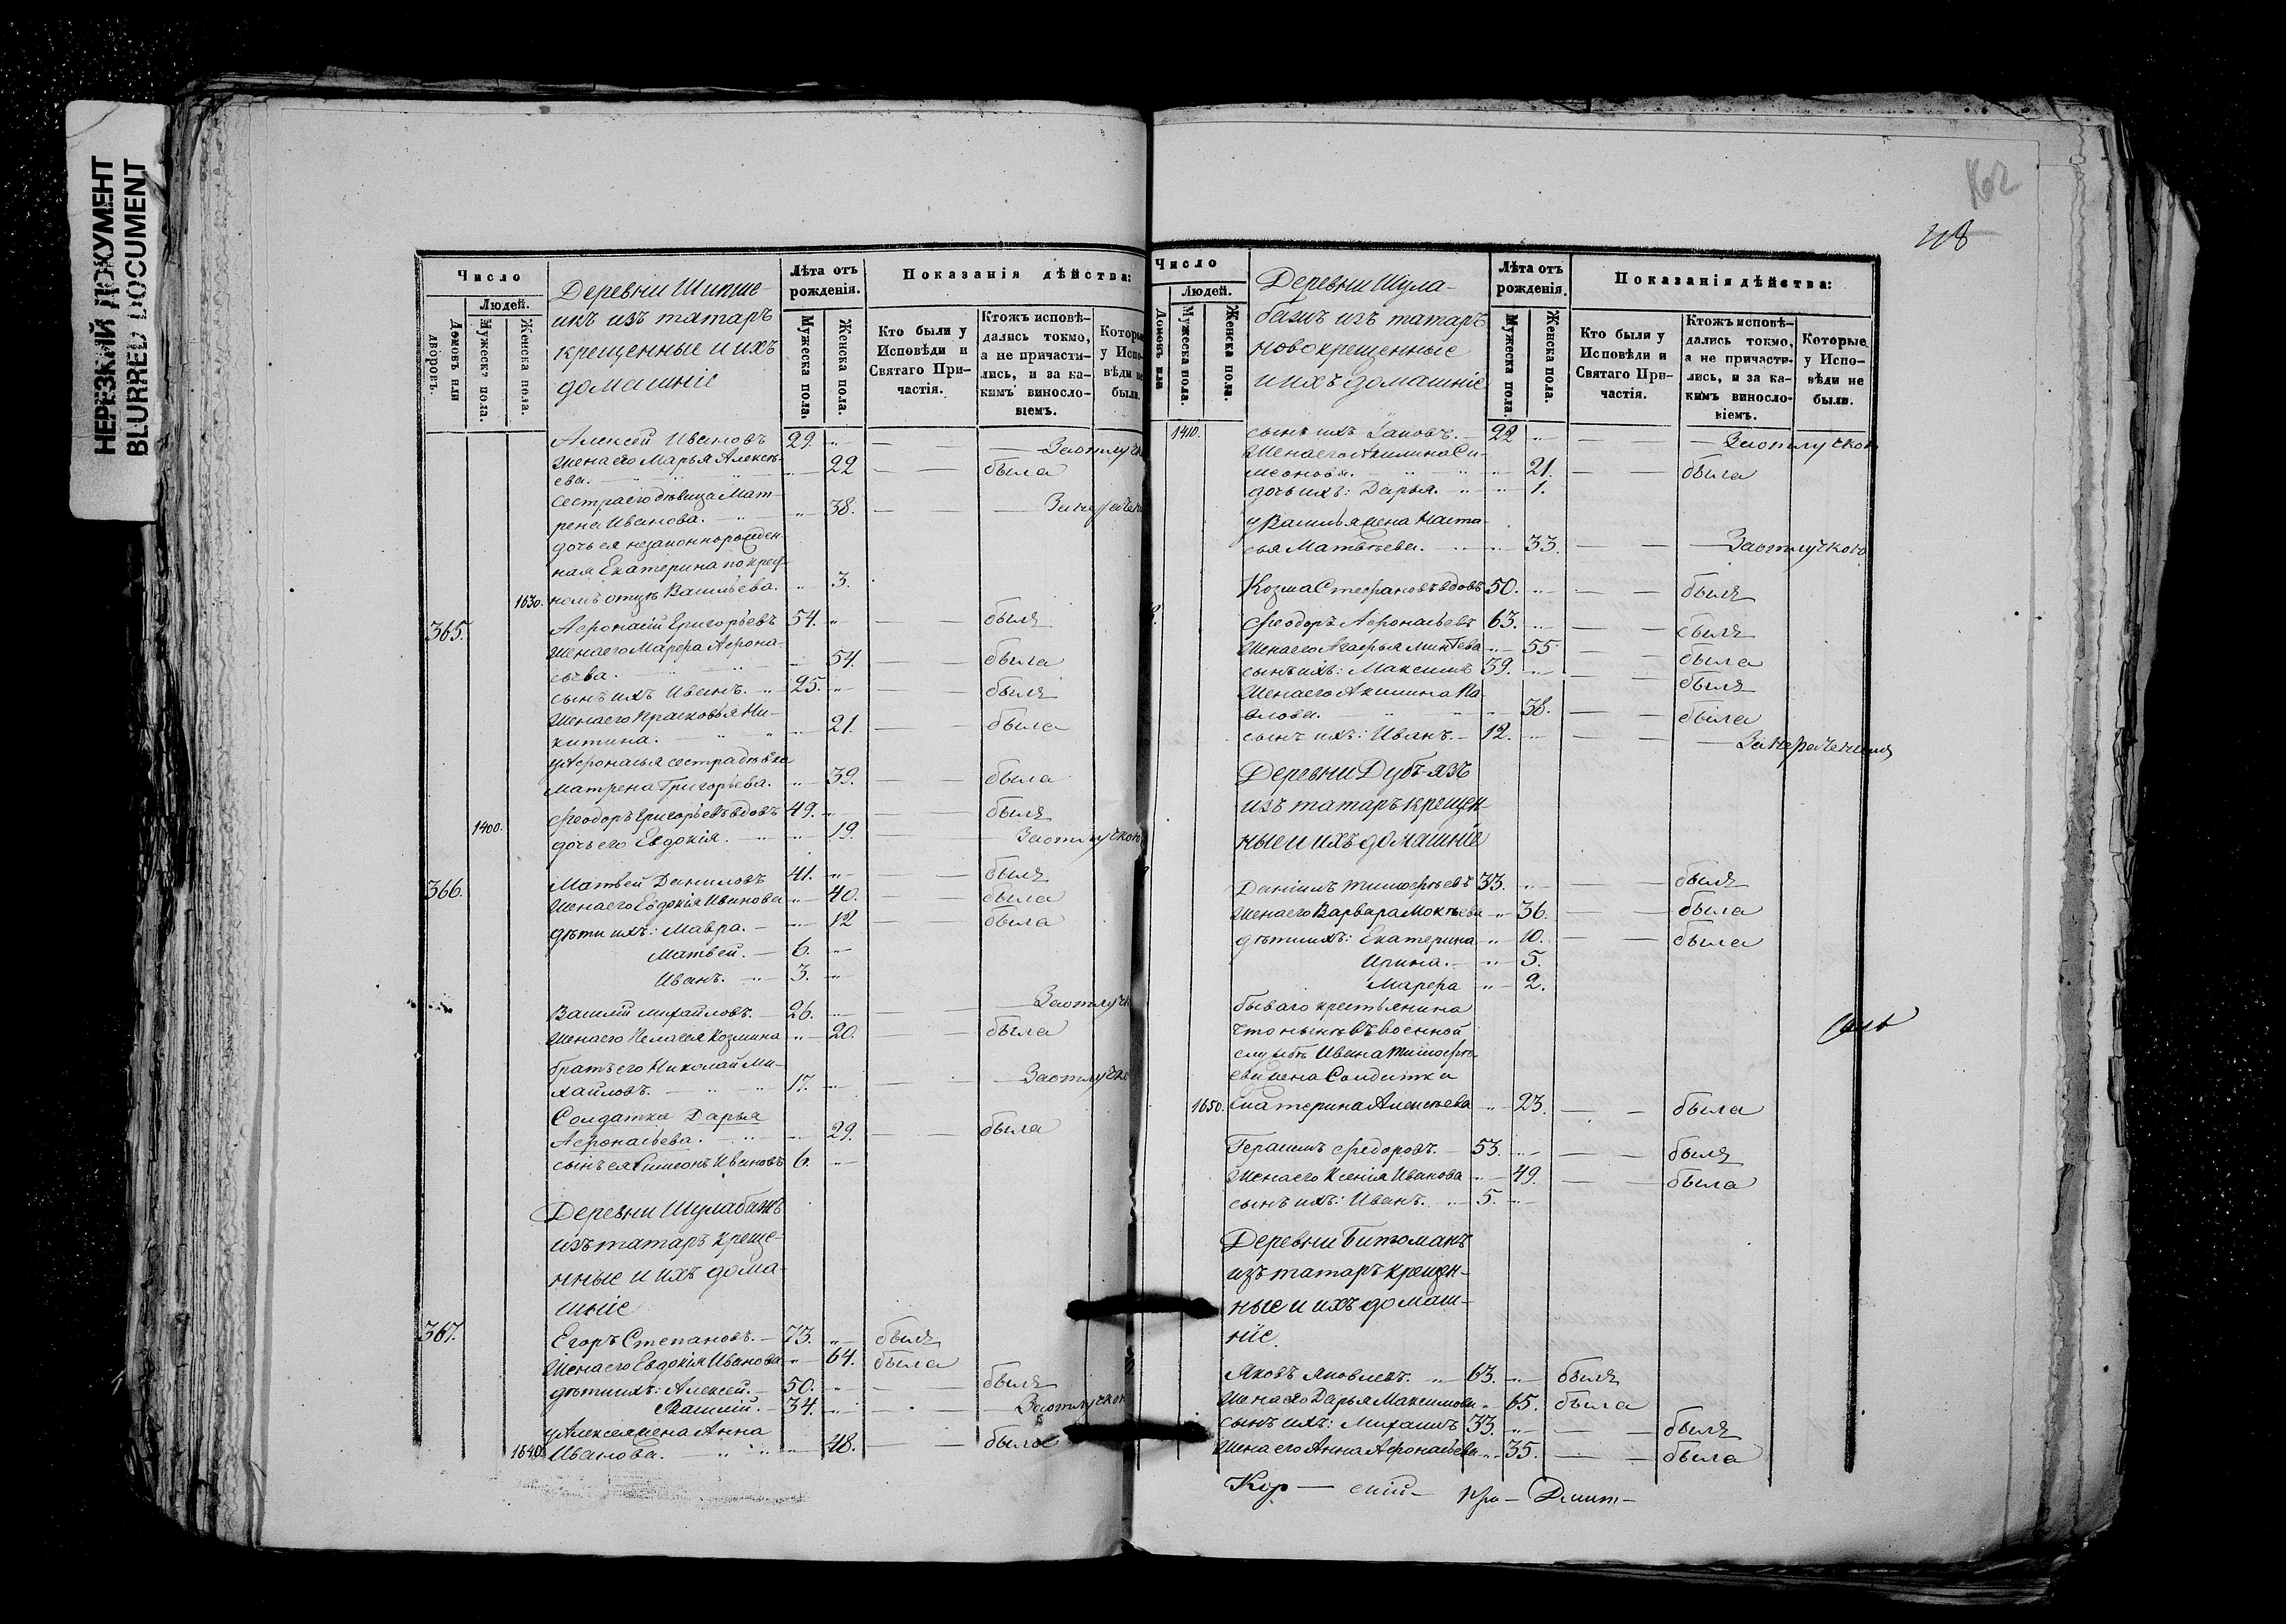 НЕРЕЗКИЙ ДОКУМЕНТ
BLURRED DOCUMENT
Число
Людей.
Домовъ или дворовъ.
Мужеска пола.
Женска пола.
Деревни Шипше-
икъ изъ татаръ
крещенные и ихъ
домашніе
Лѣта отъ рожденія.
Мужеска пола.
Женска пола.
Показанія дѣйства:
Кто были у Исповѣди и Святаго Причастія.
Ктожъ исповѣдались токмо, а не причастились, и за какимъ винословіемъ.
Которые у Исповѣди не были.
Алексей Ивановъ 29. Заотлучк
Жена его Марья Алексѣ-
ева. 22 была
сестра его дѣвица Мат-
рена Иванова. 38. Занераче
дочь ея незаконнорожден-
ная Екатерина по крес-
1630. номъ отцѣ Васильева. 3.
365. Афонасій Григорьевъ 54. былъ
Жена его Марфа Афона-
сьева. 54. была
сынъ ихъ Иванъ. 25. былъ
Жена его Прасковья Ни-
китина. 21. была
у Афонасья сестра дѣвка
Матрена Григорьева. 39. была
Феодоръ Григорьевъ вдовъ 49. былъ
1400. дочь его Евдокія. 19. Заотлучкою
366. Матвей Даниловъ 41. былъ
Жена его Евдокія Иванова 40. была
дѣти ихъ: Мавра. 12 была
Матвей. 6.
Иванъ. 3.
Василій Михайловъ. 26. Заотлучк
Жена его Пелагея Козмина 20. была
братъ его Николай Ми-
хайловъ. 17. Заотлучк
Солдатка Дарья
Афонасьева. 29. была
сынъ ея Симеонъ Ивановъ 6.
Деревни Шулабашъ
изъ татаръ креще-
нные и ихъ дома-
шніе
367. Егоръ Степановъ. 73. былъ
Жена его Евдокія Иванова 64. была
дѣти ихъ: Алексей. 50. былъ
Василій. 34. Заотлучкою
у Алексея жена Анна
1640. Иванова. 48. была
162
418
Число
Людей.
Домовъ или
Мужеска пола.
Женска пола.
Деревни Шула-
башъ изъ татаръ
новокрещенные
и ихъ домашніе
Лѣта отъ рожденія.
Мужеска пола.
Женска пола.
Показанія дѣйства:
Кто были у Исповѣди и Святаго Причастія.
Ктожъ исповѣдались токмо, а не причастились, и за какимъ винословіемъ.
Которые у Исповѣди не были.
1410. сынъ ихъ Іаковъ. 22 Заотлучкою
Жена его Акилина Си-
меонова. 21. была
дочь ихъ: Дарья. 1.
у Василья жена Наста-
сья Матвѣева. 33. Заотлучкою
Козма Стефановъ вдовъ 50. былъ
Феодоръ Афонасьевъ 63. былъ
Жена его Агафья 55 была
сынъ ихъ: Максимъ 39. былъ
Жена его Акилина Па-
влова. 38. была
сынъ ихъ: Иванъ. 12. Занераченiемъ
Деревни Дубъязъ
изъ татаръ крещен-
ные и ихъ домашніе
Даніилъ Тимофѣевъ 33. былъ
Жена его Варвара Мокѣева 36. была
дѣти ихъ: Екатерина 10. была
Ирина. 5.
Марфа 2.
бываго крестьянина
что нынѣ въ военной
службѣ Ивана Тимофѣ-
ева жена Солдатка
1650. Екатерина Алексѣева 23. была
Герасимъ Федоровъ. 53. былъ
Жена его Ксенія Иванова 49. была
сынъ ихъ: Иванъ. 5.
Деревни Битаманъ
изъ татаръ крещен-
ные и ихъ домаш-
ніе
Яковъ Яковлевъ. 63. былъ
Жена его Дарья Максимова 65. была
сынъ ихъ: Михаилъ 33. былъ
Жена его Анна Афонасьева 35. была